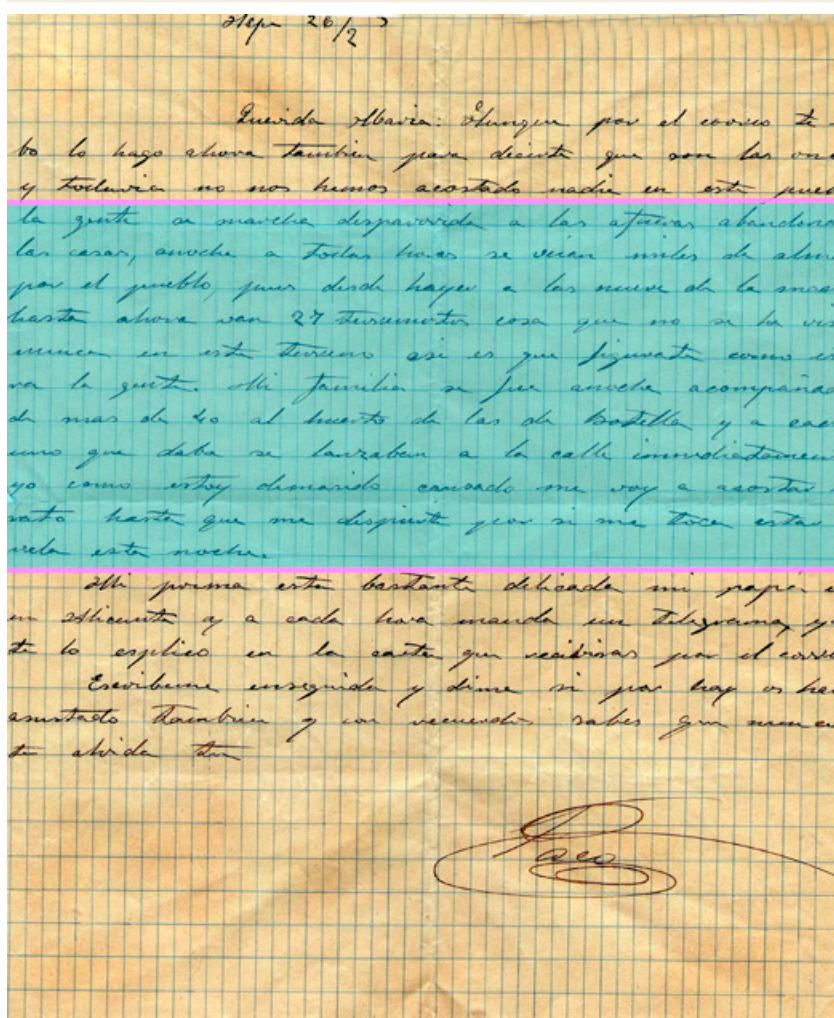 Aspe 26/2
Querida Maria: Aunque por el correo te
bo lo hago ahora tambien para decirte que son las onc
y todavia no nos hemos acostado nadie en este pueb
la gente se marcha despavorida a las afueras abandona
las casas, anoche a todas horas se veian miles de alma
por el pueblo, pues desde hayer a las nueve de la maña
hasta ahora van 27 terremotos cosa que no se ha vis
nunca en este terreno asi es que figurate como es
ra la gente. Mi familia se fue anoche acompañad
de mas de 40 al huerto de las de Botella y a cad
uno que daba se lanzaban a la calle inmediatamen
yo como estoy demasido cansado me voy a acostar
rato hasta que me despierte por si me toca estar
vela esta noche.
Mi prima esta bastante delicada mi papá e
en Alicante y a cada hora manda un telegrama, ya
te lo esplico en la carta que recibiras por el corre
Escribeme enseguida y dime si por hay os han
asustado tambien y con recuerdos sabes que nunca
te olvida tu
Paco